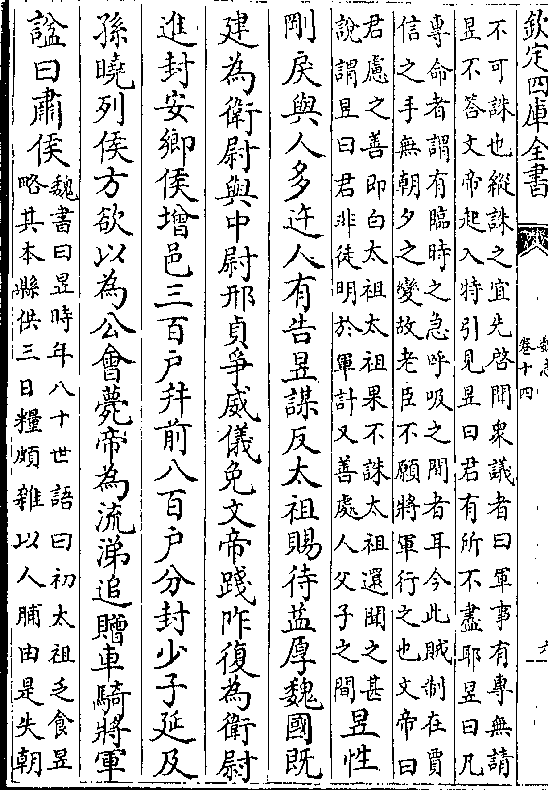 欽定四庫全書
魏志
卷十四
六
不可誅也縱誅之宜先啓聞衆議者曰軍事有專無請
昱不荅文帝起入特引見昱曰君有所不盡耶昱曰凡
專命者謂有臨時之急呼吸之間者耳今此賊制在賈
信之手無朝夕之變故老臣不願將軍行之也文帝曰
君慮之善即白太祖太祖果不誅太祖還聞之甚
説謂昱曰君非徒明於軍計又善處人父子之間
昱性
剛戾與人多迕人有告昱謀反太祖賜待益厚魏國既
建為衛尉與中尉邢貞爭威儀免文帝踐阼復為衛尉
進封安鄉侯增邑三百戸并前八百戸分封少子延及
孫曉列侯方欲以為公會薨帝為流涕追贈車騎將軍
諡曰肅侯
魏書曰昱時年八十世語曰初太祖乏食昱
略其本縣供三日糧頗雜以人脯由是失朝